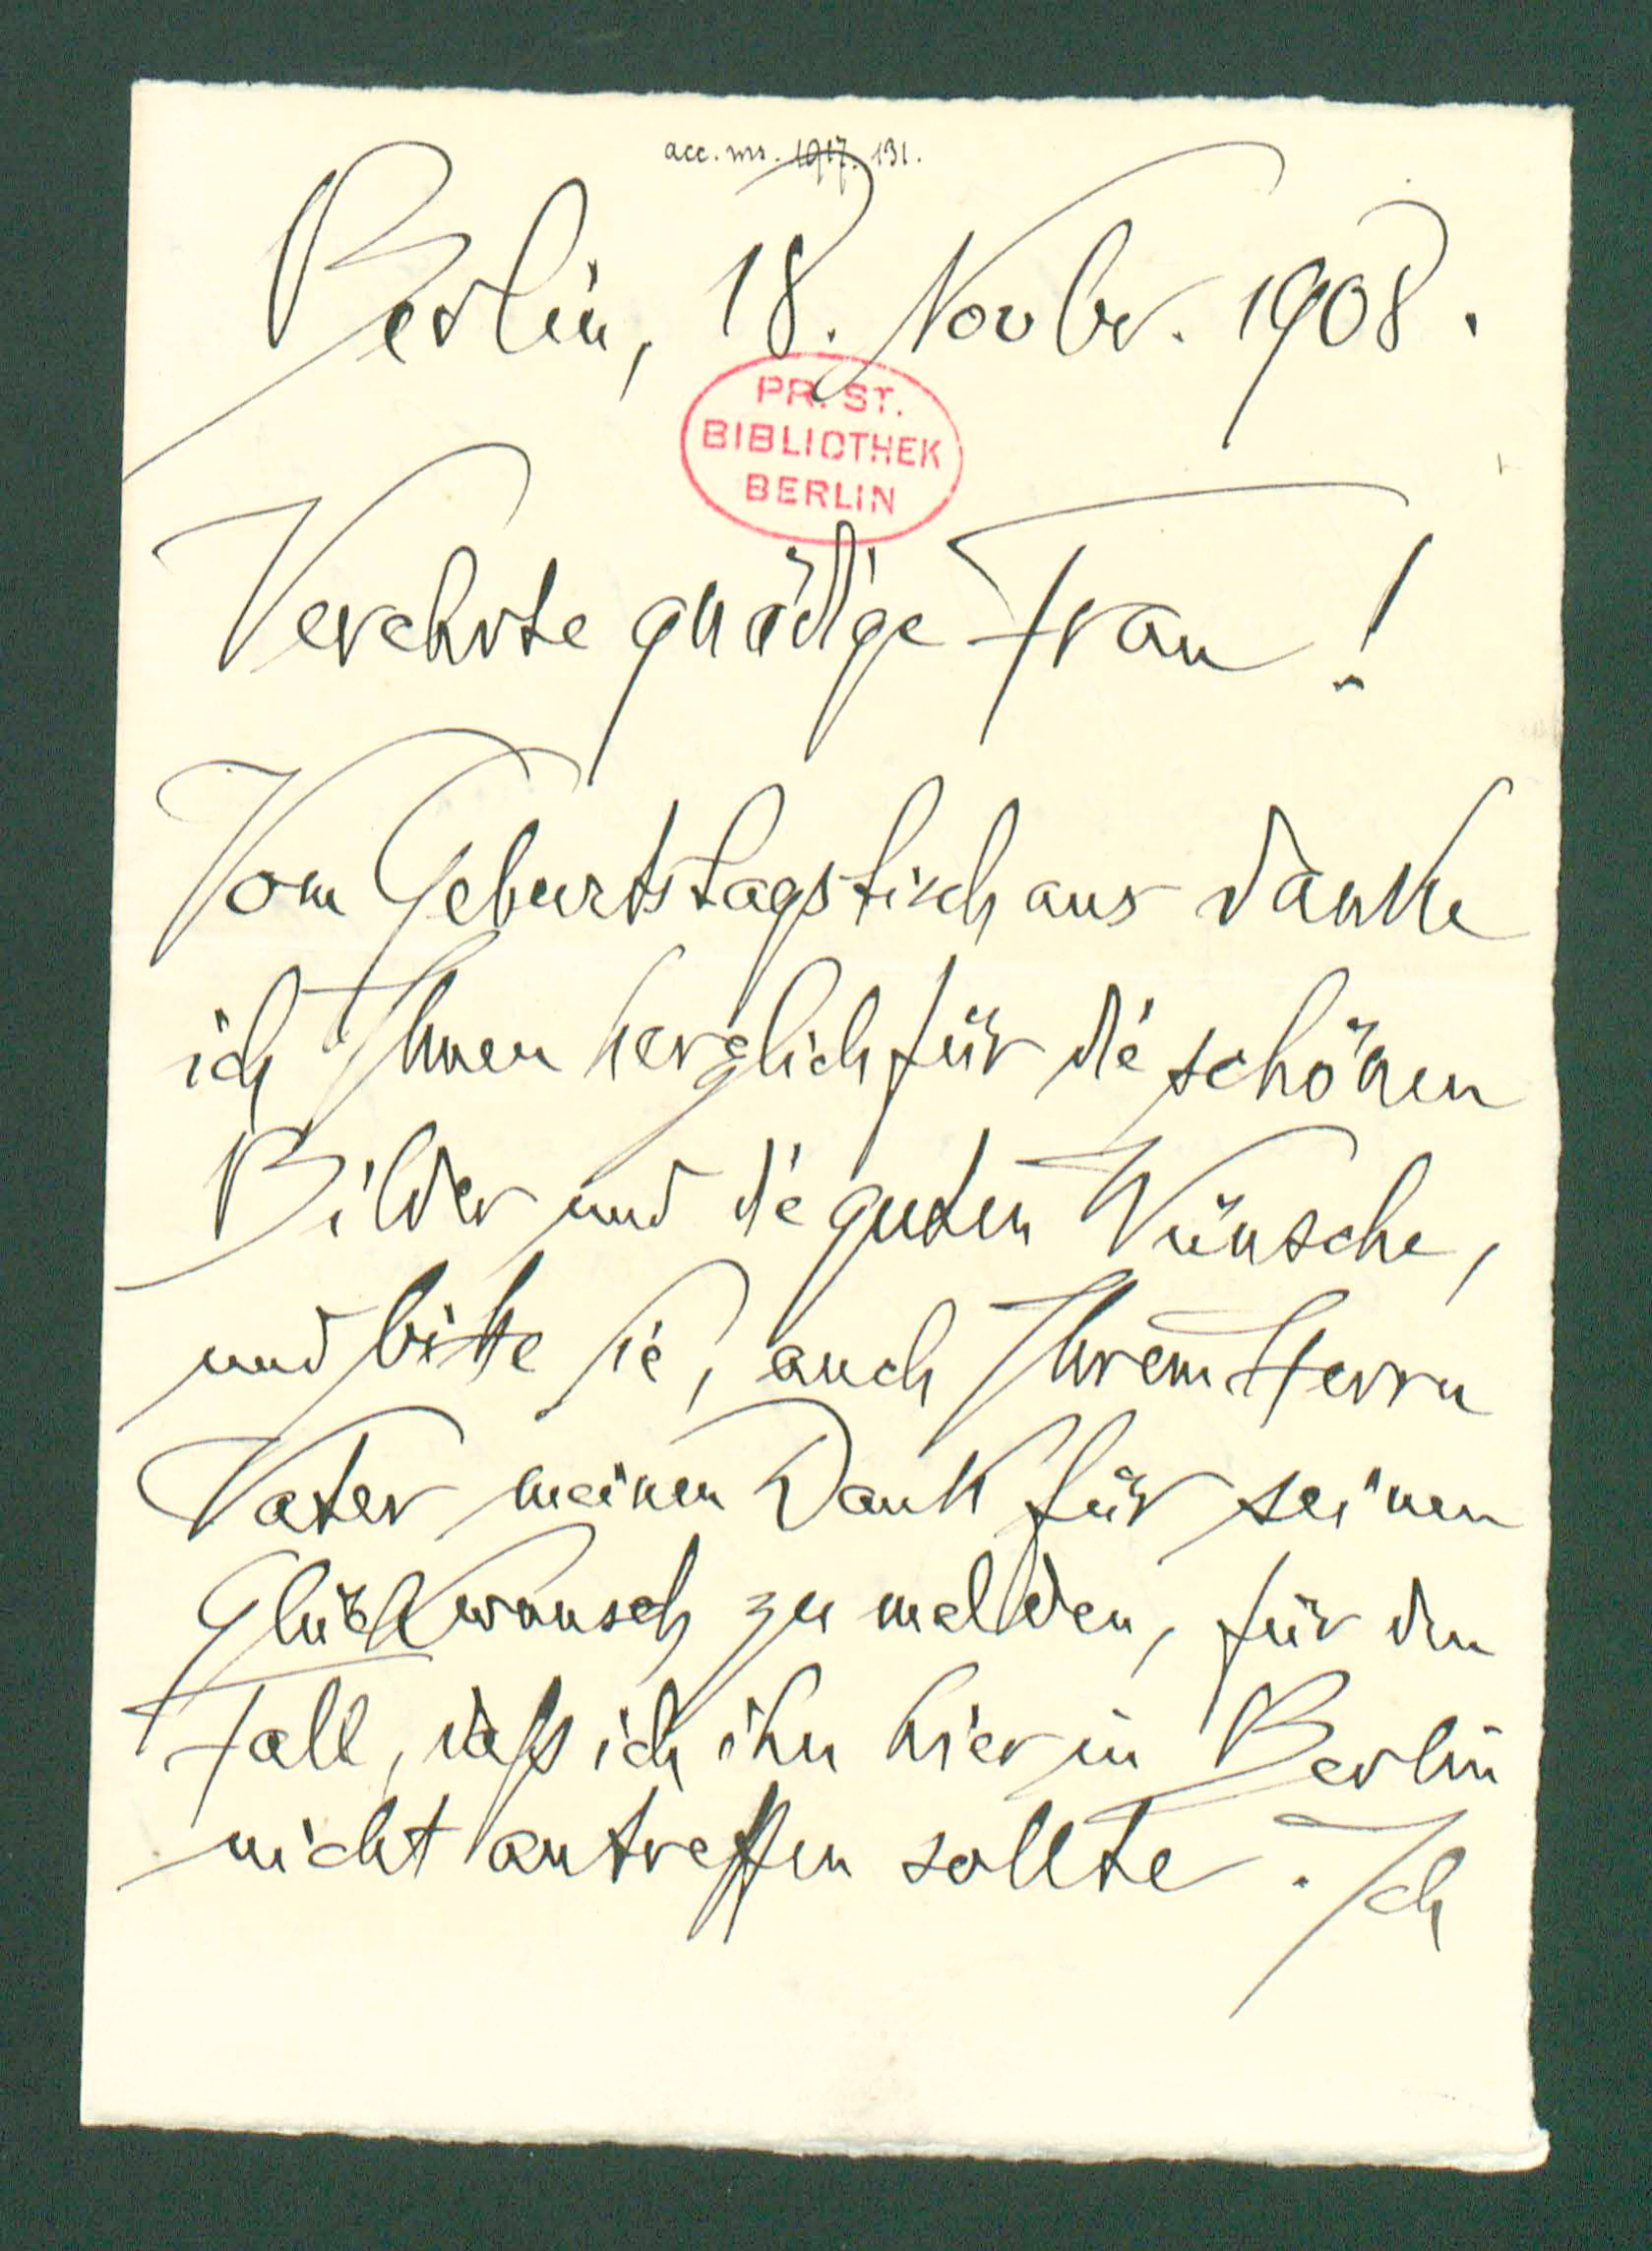 acc. ms. 1917. 131.
Berlin, 18. Novbr. 1908.
PR. ST.
BIBLIOTHEK
BERLIN
Verehrte gnädige Frau!
Vom Geburtstagstisch aus danke
ich Ihnen herzlich für die schönen
Bilder und die guten Wünsche,
und bitte Sie, auch Ihrem Herrn
Vater meinen Dank für seinen
Glückwunsch zu melden, für den
Fall, daß ich ihn hier in Berlin
nicht antreffen sollte. Ich